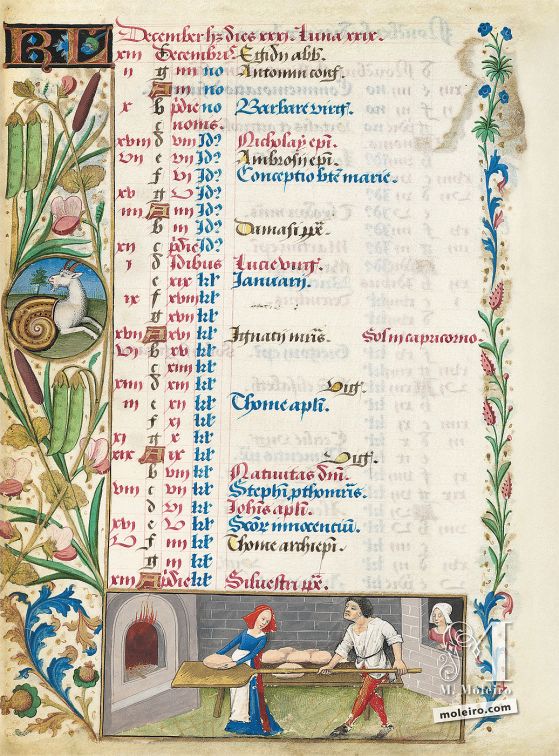 KL December hz dies xxxi. Luna xxix.
xiii Decembris Egidij abb.
ii g iiii no Antonini conf.
A iii no
x b pridie no Barbare virg.
c nonis.
xviii d viii Id9 Nicholay epi.
vii e vii Id9 Ambrosij epi.
f vi Id9 Conceptio bte marie.
xv g v Id9
iiii A iiii Id9
b iii Id9 Damasi pp.
xii c pridie Id9
i d Idibus Lucie virg.
e xix kl Januarij.
ix f xviii kl
g xvii kl
xvii A xvi kl Ignatij mris. Sol in capricorno.
vi b xv kl
c xiiii kl
xiiii d xiii kl Vig.
iii e xii kl Thome apli.
f xi kl
xi g x kl
xix A ix kl Vig.
b viii kl Nativitas dni.
viii c vii kl Stephi pthomris.
d vi kl Johis apli.
xvi e v kl Scor innocenciu.
v f iiii kl Thome archiepi.
g iii kl
xiii A pridie kl Silvestri pp.
M
M. Moleiro
moleiro.com